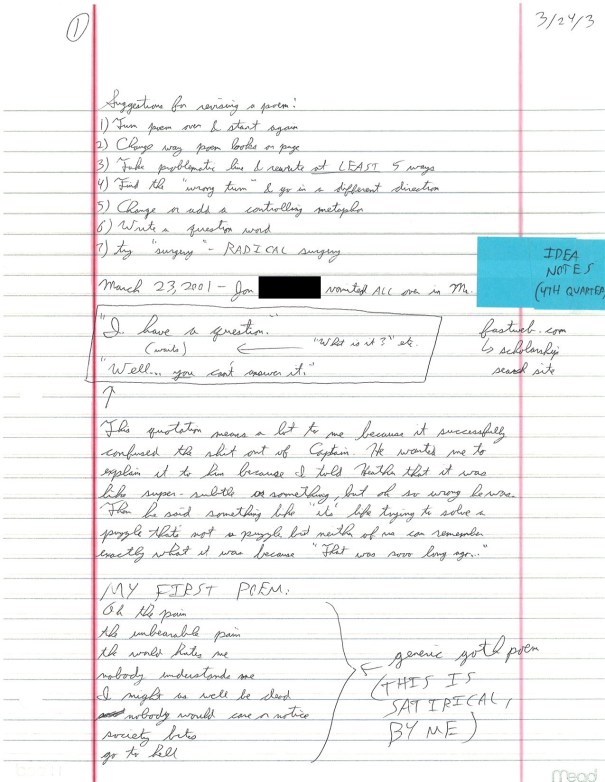 1
3/24/3
Suggestions for revising a poem:
1) Turn poem over & start again
2) Change way poem looks on page
3) Take problematic line & rewrite at LEAST 5 ways
4) Find the "wrong turn" & go in a different direction
5) Change or add a controlling metaphor
6) Write a question word
7) try "surgery" - RADICAL surgery
IDEA
NOTES
(4TH QUARTER
March 23, 2001 - Jon vomited ALL over in Mr.
"I have a question."
(waits) "What is it?" etc.
"Well... you can't answer it."
fastweb.com
↳ scholarship
search site
This quotation means a lot to me because it successfully
confused the shit out of Captain. He wanted me to
explain it to him because I told Heather that it was
like super-subtle or something, but oh so wrong he was.
Then he said something like "it's like trying to solve a
puzzle that's not a puzzle but neither of us can remember
exactly what it was because "That was sooo long ago..."
MY FIRST POEM:
Oh the pain
the unbearable pain
the world hates me
nobody understands me
I might as well be dead
nobody would care or notice
society bites
go to hell
← generic goth poem
(THIS IS
SATIRICAL,
BY ME)
Mead